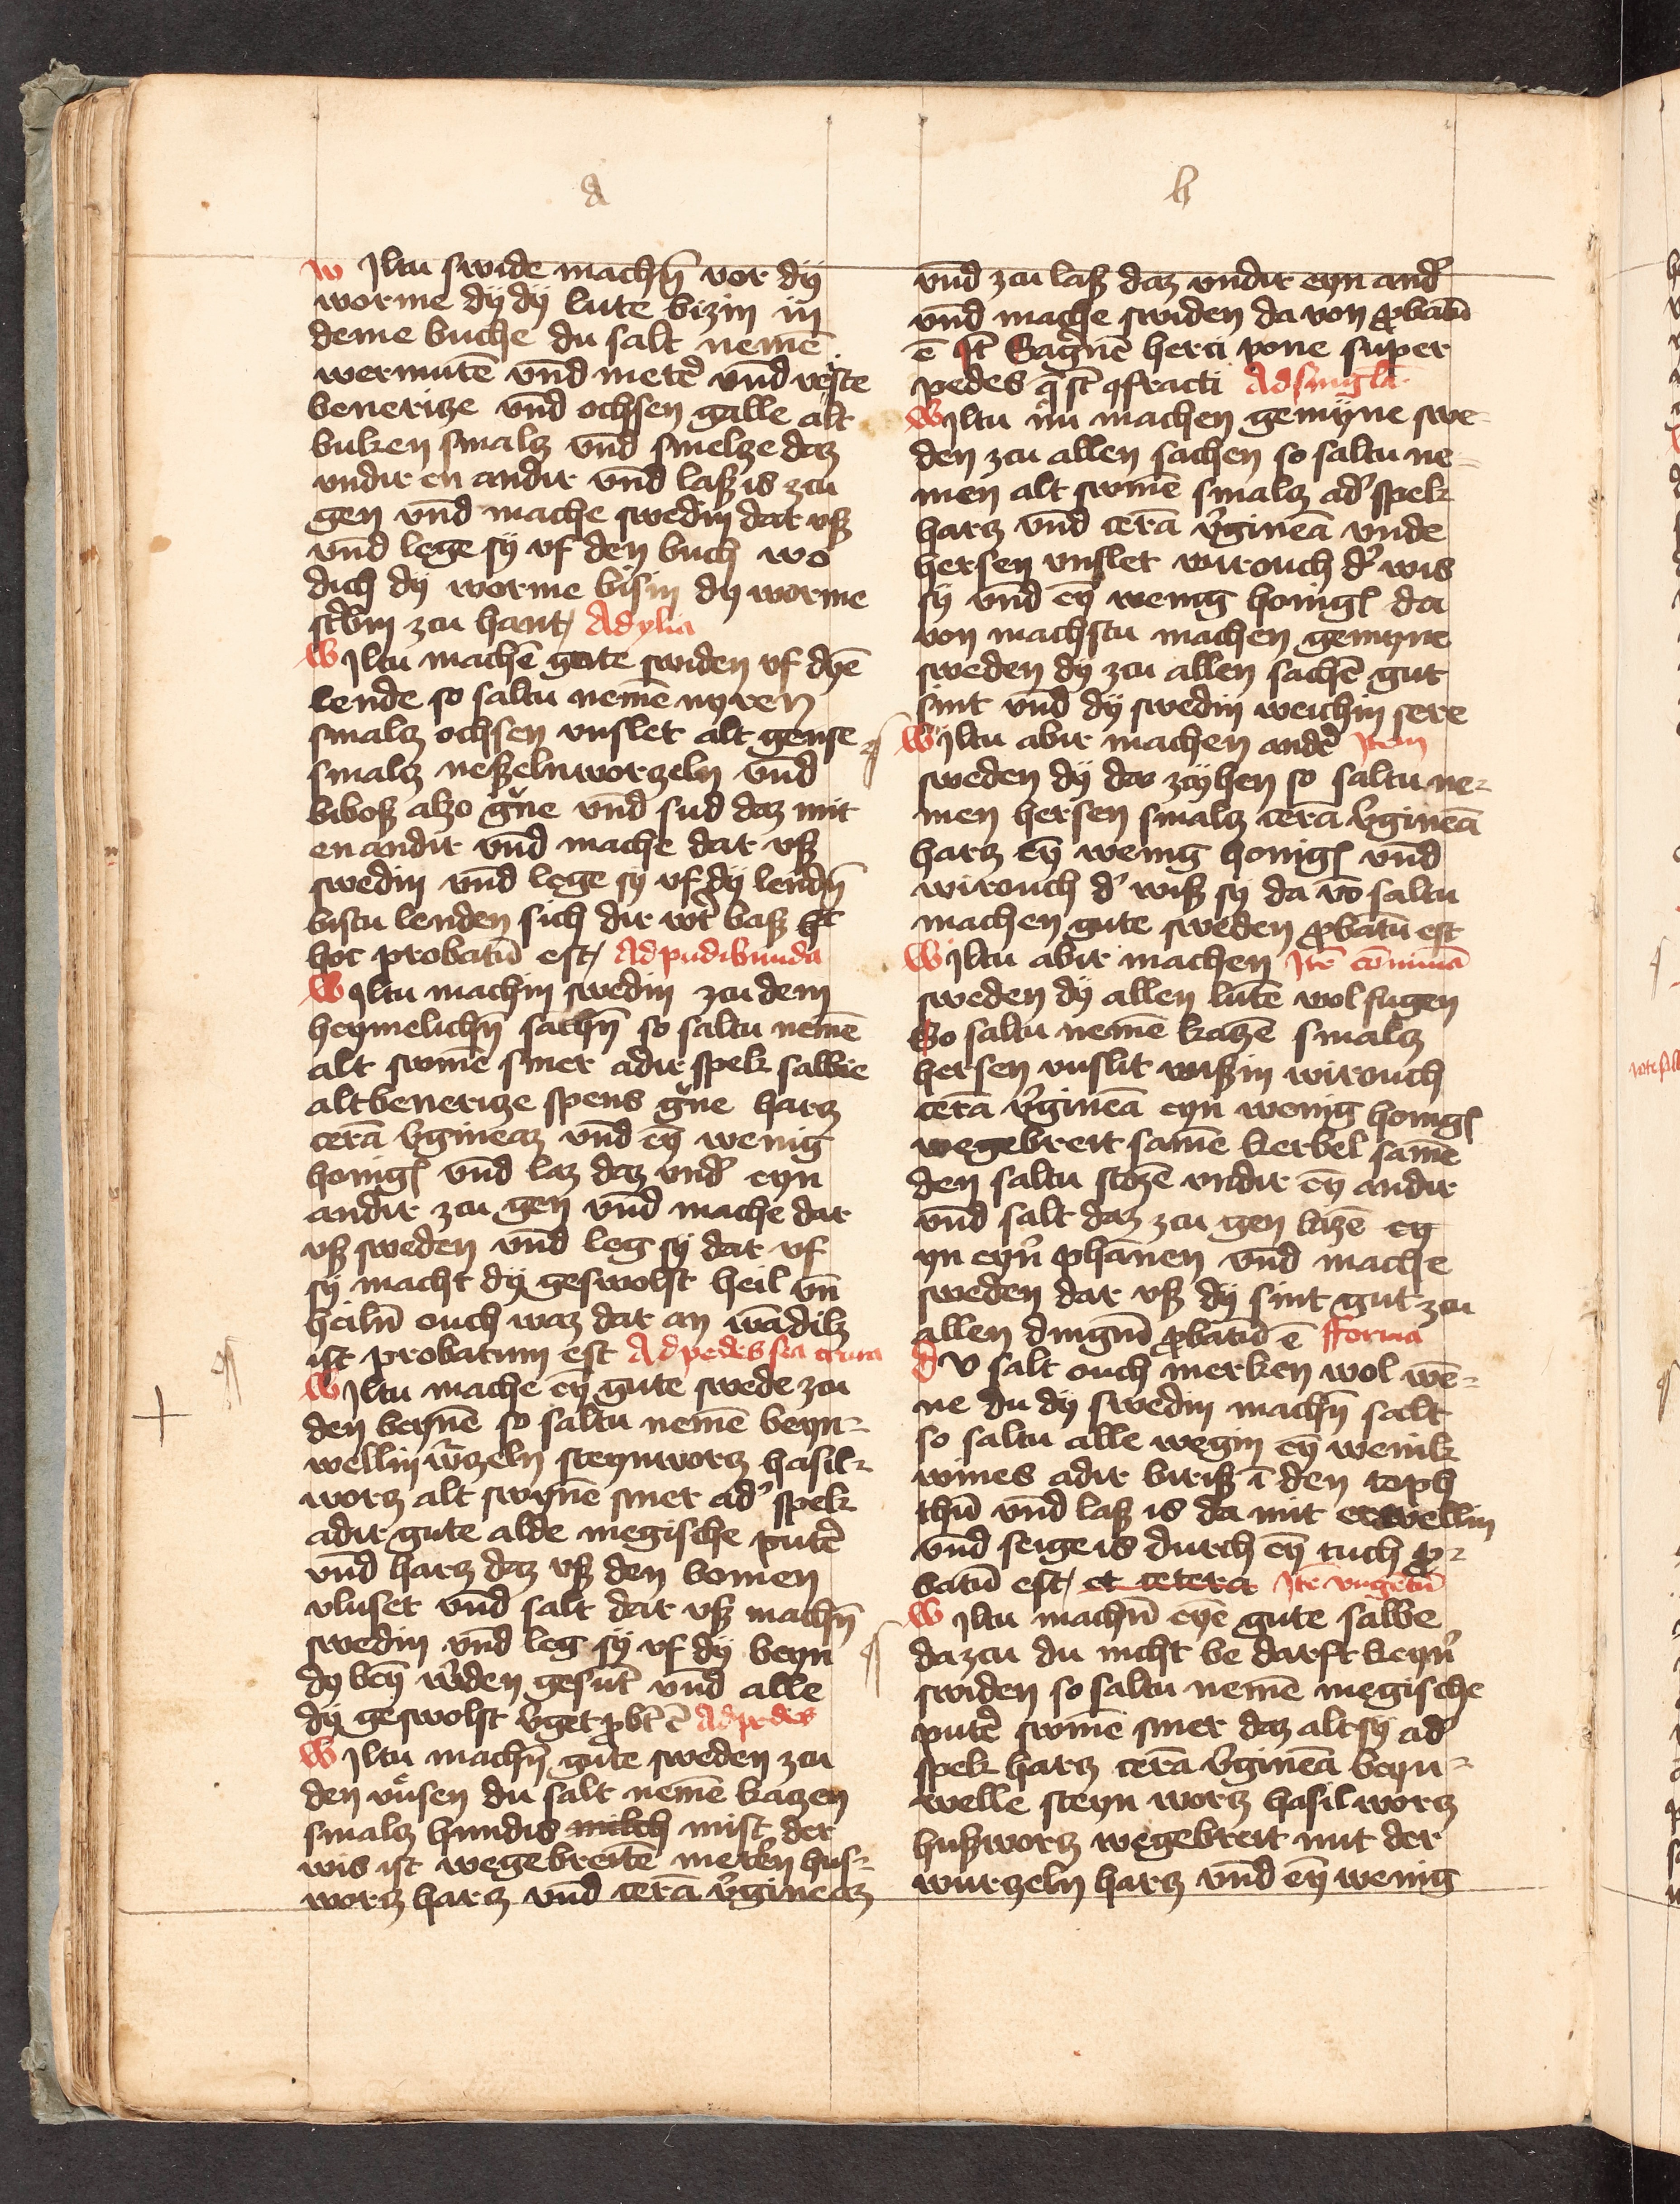 a
Wiltu swide machē vor dÿ
worme dÿ dÿ lute bizin in
deme buche du salt nemē
wermutē vnd metē vnd veste
beneritze vnd ochsen galle alt
buken smalz vnd smelze daz
vndir en andir vnd laß is zcu
gen vnd mache swedin dar vß
vnd lege sÿ vf den buch wo
dich dÿ worme bisin dÿ worme
st'bin zcu hant Ad ylia
Wiltu machē gute swiden vf dyē
lende so saltu nemē nyren
smalz ochsen vnslet alt gense
smalz neßelnworzeln vnd
biboß alzo g'ne vnd sud daz mit
en andir vnd mache dar vß
swedin vnd lege sÿ vf dÿ lendn̄
bistu lenden sich dir w't baß
hoc probatū est Ad pudibunda
Wiltu machin swedin zcu dem
heymelichn̄ sachn̄ so saltu nemē
alt swinē smer adir spek salbie
alt beneritze spens g'ne harz
cerā v'gineaz vnd eȳ wenig
honigs vnd laz daz vnd' eyn
andir zcu gen vnd mache dar
vß sweden vnd leg sÿ dar vf
sÿ macht dÿ geswolst heil vn̄
heiln̄ ouch waz dar an wādilz
ist probatum est Ad pedes seu crura
Wiltu mache eȳ gute swede zcu
den beynē so saltu nemē beyn-
wellin w'zeln steynworz hasil-
worz alt swynē smer ad' spek
adir gute alde megische put'
vnd harz daz vß den bomen
vluset vnd salt dar vß machn̄
swedin vnd leg sÿ vf dÿ beyn
dÿ beȳ w'den gesūt vnd alle
dÿ geswolst v'get p̄bt' ē Ad pedes
Wiltu machn̄ gute sweden zcu
den vůsen du salt nemē katzen
smalz hundis milch mist der
wis ist wegebreitē hus-
worz harz vnd cerā v'gineaz
b
vnd zcu laß daz vndir eyn and'
vnd mache swiden da von p̄batū
ē It' Sagimē herci pone super
pedes q̄ st̄ ꝯfracti Ad singl'a
Wiltu nu machen gemÿne swe-
den zcu allen sachen so saltu ne-
men alt swinē smalz ad' spek
harz vnd cerā v'gineā vnde
hersen vnslet wirouch d' wis
sÿ vnd eȳ wenig honigs da
von machstu machen gemyne
sweden dÿ zcu allen sachē gut
sint vnd dÿ swedin weichin sere
Wiltu abir machen and' Item
sweden dÿ da zcÿhen so saltu ne-
men hersen smalz cerā v'gineā
harz eȳ wenig honigs vnd
wirouch d' wiß sÿ da vō saltu
machen gute sweden p̄batū est
Wiltu abir machen Itē cōmunā
sweden dÿ allen lutē wol fugen
So saltu nemē katzē smalz
hersen vnslit wißin wirouch
cerā v'gineā eyn wenig honigs
wegebreit samē kerbel samē
den saltu stozē vndir eȳ andir
vnd salt daz zcu gen lazē eȳ
yn eyn' phannen vnd mache
sweden dar vß dÿ sint gut zcu
allen dingn̄ p̄batū ē fforma
dv salt ouch merken wol wē-
ne du dÿ swedin machn̄ salt
so saltu alle wegin eȳ wenik
wines adir birß ī den toph
thū vnd laß is da mit erwellin
vnd seige is durch eȳ tuch p̄-
batū est et cetera Itē vngētū
Wiltu machn̄ eyē gute salbe
dazcu du nicht be darft keyn'
swiden so saltu nemē megische
put' swinē smer daz alt sÿ ad'
spek harz cerā v'gineā beyn-
welle steyn worz hasilworz
hußworz wegebreit mit der
wurzeln harz vnd eȳ wenig